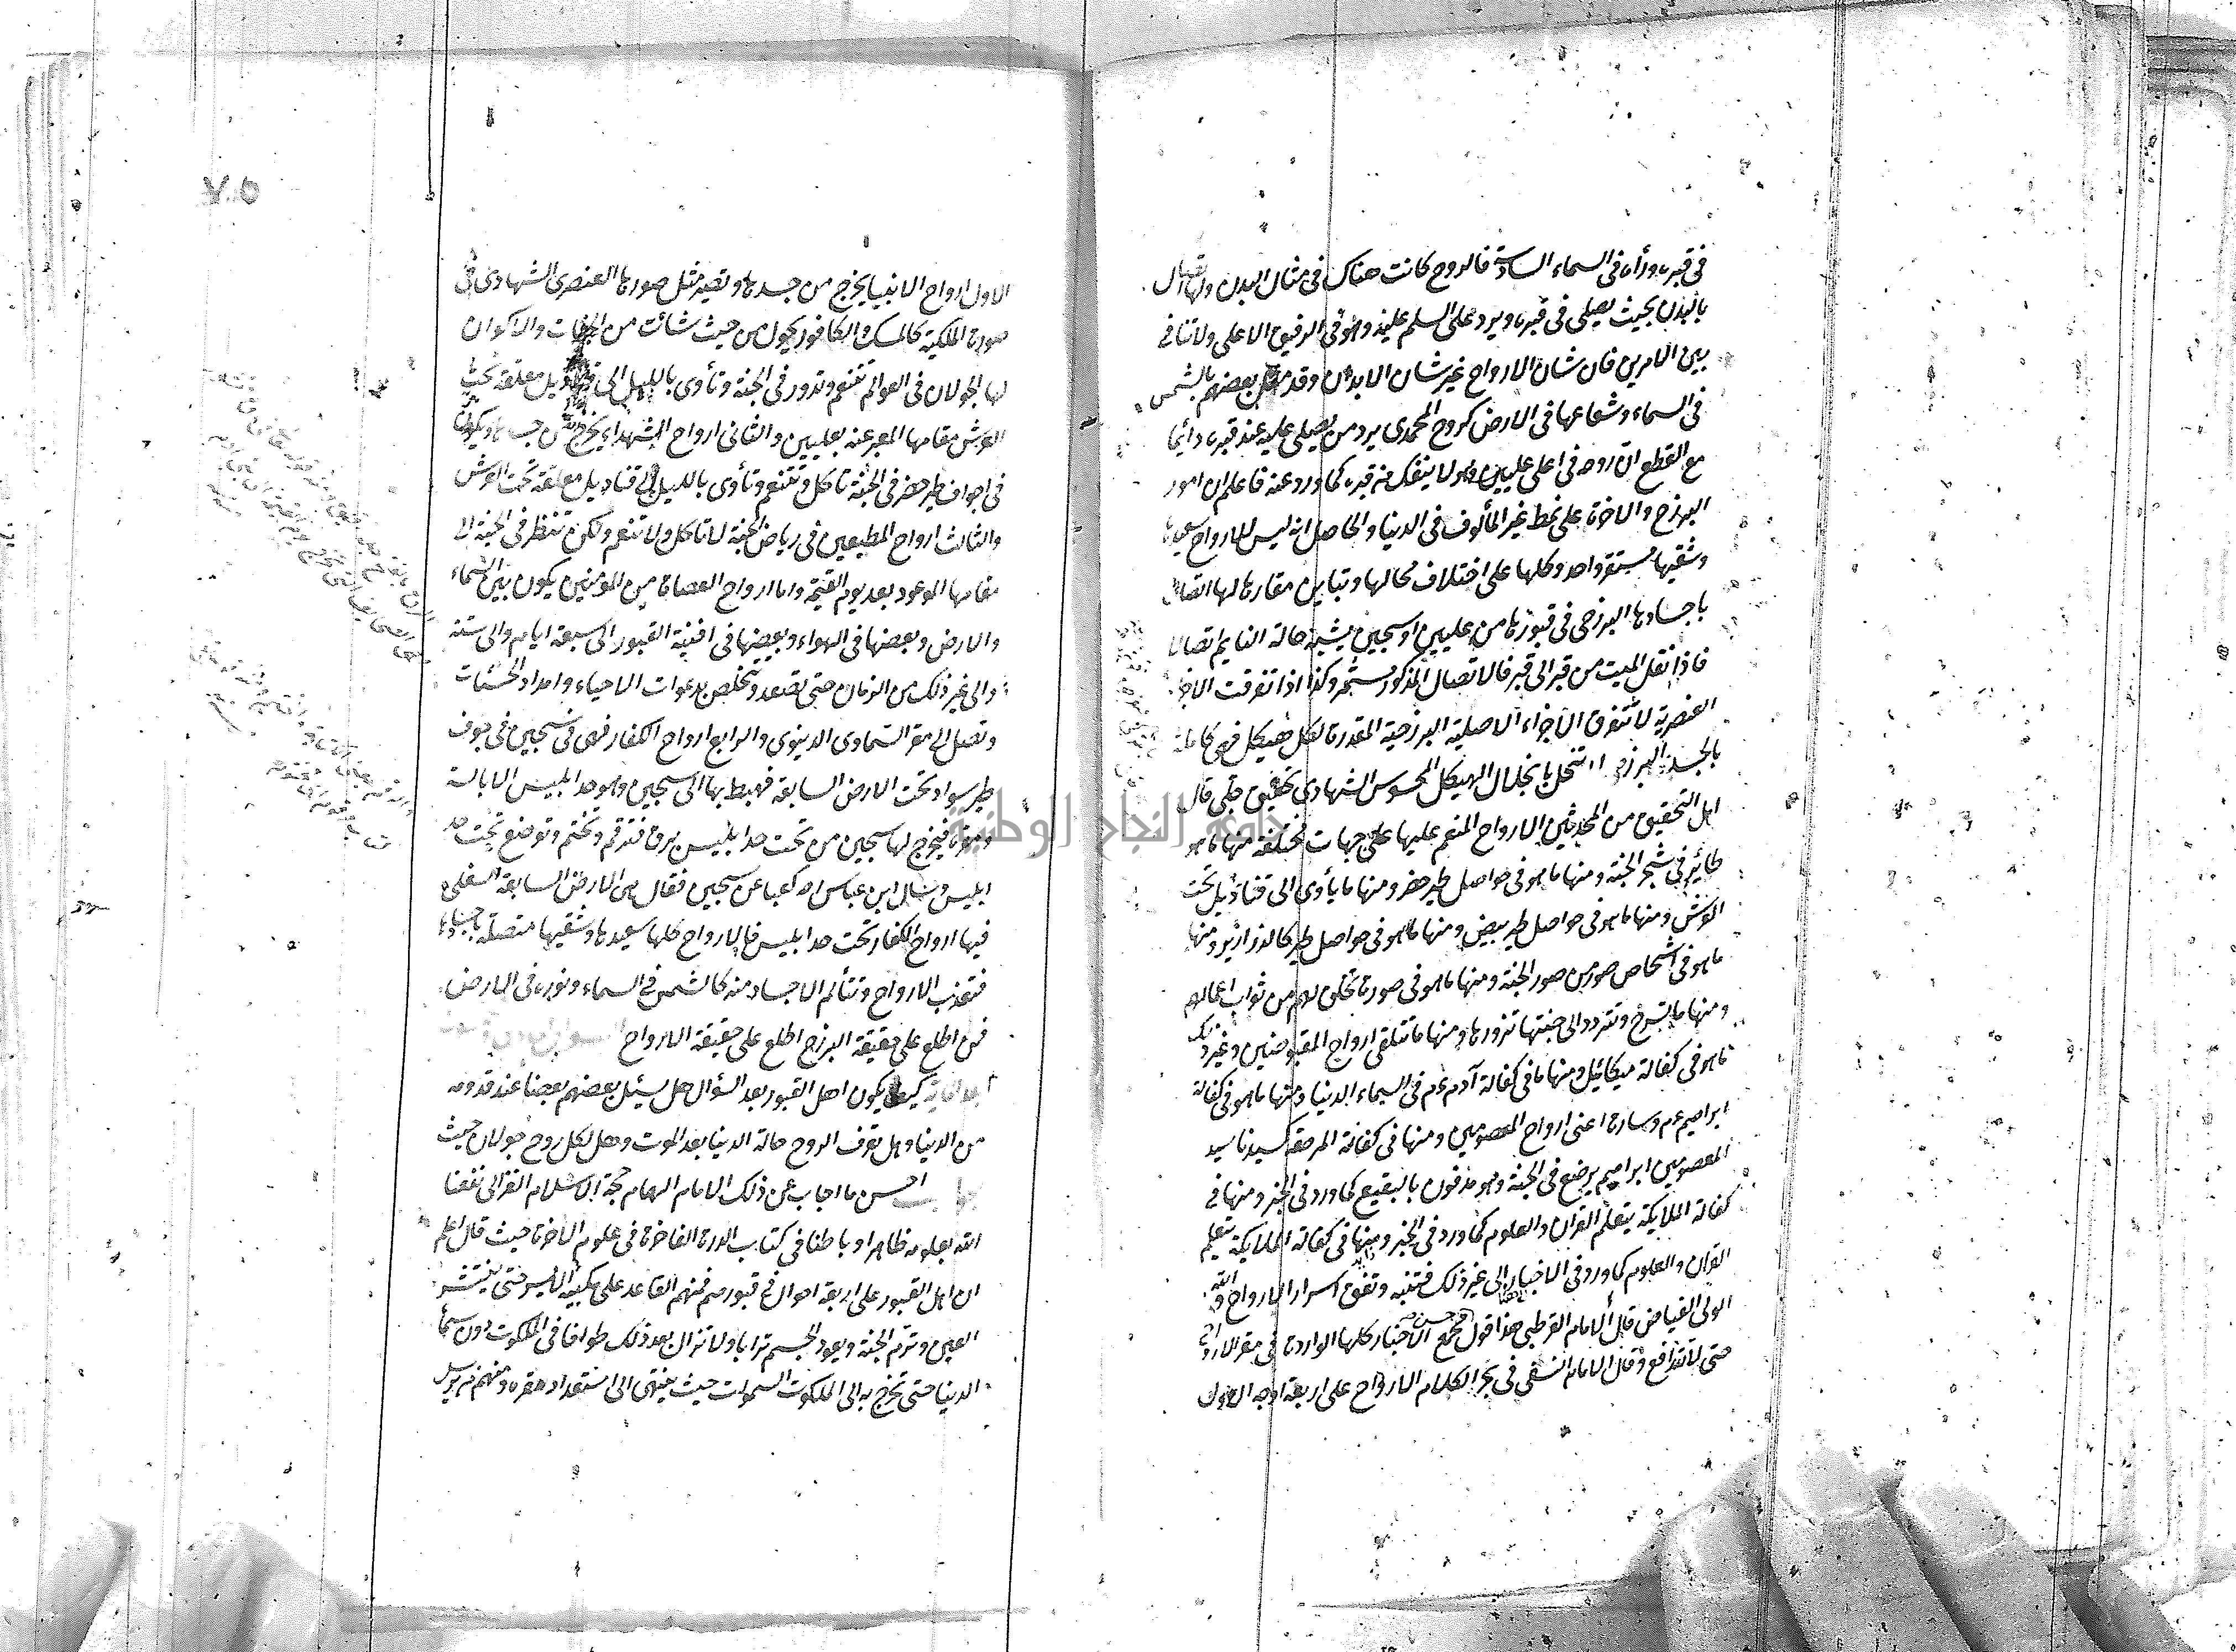 في قبره ورآه في السماء السادسة فالروح كانت هناك في مثال البدن ولها اتصال
بالبدن بحيث يصلي في قبره ويرد على المسلم عليه وهو في الرفيق الاعلى ولا تنافي
بين الامرين فان شان الارواح غير شان الابدان وقد مثل بعضهم بالشمس
في السماء وشعاعها في الارض كروح المحمدي يرد من يصلي عليه عند قبره دائما
مع القطع ان روحه في اعلى عليين وهو لا ينفك من قبره كما ورد عنه فاعلم ان امور
البرزخ والاخرة على نمط غير المألوف في الدنيا والحاصل انه ليس للارواح سعيدها
وشقيها مستقر واحد وكلها على اختلاف محالها وتباين مقارها لها اتصال
باجسادها البرزخي في قبورها من عليين او سجين يشبه حالة النايم اتصالا
فاذا نقل الميت من قبر الى قبر فالاتصال المذكور مستمر وكذا اذا تفرقت الاجزا
العنصرية لا تتفرق الاجزاء الاصلية البرزخية المقدرة لكل هيكل فهي كاملة
بالجسد البرزخي لا تنحل بانحلال الهيكل المحسوس الشهادي تحقيق جلي قال
اهل التحقيق من المحدثين الارواح المنعم عليها على جهات مختلفة منها ما هو
طائر في شجر الجنة ومنها ما هو في حواصل طير خضر ومنها ما يأوي الى قناديل تحت
العرش ومنها ما هو في حواصل طير بيض ومنها ما هو في حواصل طير كالزرازير ومنها
ما هو في اشخاص صور من صور الجنة ومنها ما هو في صورة تخلق لهم من ثواب اعمالهم
ومنها ما تسرح وتتردد الى جثتها تزورها ومنها ما تتلقى ارواح المقبوضين وغير ذلك
ما هو في كفالة ميكائيل ومنها ما في كفالة آدم عم في السماء الدنيا ومنها ما هو في كفالة
ابراهيم عم وسارة اعني ارواح المعصومين ومنها في كفالة المرضعة لسيدنا سيد
المعصومين ابراهيم يرضع في الجنة وهو مدفون بالبقيع كما ورد في الخبر ومنها في
كفالة الملايكة يتعلم القران والعلوم كما ورد في الخبر ومنها في كفالة الملايكة يتعلم
القران والعلوم كما ورد في الاخبار الى غير ذلك فتنبه وتفرق اسرار الارواح والله
الولي الفياض قال الامام القرطبي هذا قول حسن يجمع الاخبار كلها الواردة في مقر الارواح
حتى لا تتدافع وقال الامام النسفي في بحر الكلام الارواح على اربعة اوجه الاول
٧٥
الاول ارواح الانبيا يخرج من جسدها وتصير مثل صورها العنصري الشهادي في
صورة الملكية كالمسك والكافور يجول من حيث شائت من الجهات والاكوان
لها الجولان في العوالم تتنعم وتدور في الجنة وتأوى بالليل الى قناديل معلقة تحت
العرش مقامها المعبر عنه بعليين والثاني ارواح الشهداء يخرج من جسدها ويكون
في اجواف طير خضر في الجنة تاكل وتتنعم وتأوى بالليل الى قناديل معلقة تحت العرش
والثالث ارواح المطيعين في رياض الجنة لا تاكل ولا تتنعم ولكن تنظر في الجنة الى
مقامها الموعود بعد يوم القيمة واما ارواح العصاة من المؤمنين يكون بين السماء
والارض وبعضها في الهواء وبعضها في افنية القبور الى سبعة ايام والى سنة
والى غير ذلك من الزمان حتى تصعد وتتخلص بدعوات الاحياء وامداد الحسنات
وتصل الى مقر السماوي الدنيوي والرابع ارواح الكفار فهي في سجين في جوف
طير سواد تحت الارض السابعة فهبط بها الى سجين وهو حد ابليس الابالسة
فيخرج لها سجين من تحت حد ابليس برق فترقم وتختم وتوضع تحت حد
ابليس وسأل ابن عباس كعبا عن سجين فقال هي الارض السابعة السفلى
فيها ارواح الكفار تحت حد ابليس فالارواح كلها سعيدها وشقيها متصلة باجسادها
فتعذب الارواح وتتألم الاجساد منه كالشمس في السماء ونوره في الارض
فمن اطلع على حقيقة البرزخ اطلع على حقيقة الارواح
كيف يكون اهل القبور بعد السؤال هل يسئل بعضهم بعضا عند قدومه
من الدنيا وهل يعرف الروح حالة الدنيا بعد الموت وهل لكل روح جولان حيث
احسن ما اجاب عن ذلك الامام الهمام حجة الاسلام الغزالي نفعنا
الله بعلومه ظاهرا وباطنا في كتاب الدرة الفاخرة في علوم الاخرة حيث قال اعلم
ان اهل القبور على اربعة احوال في قبورهم فمنهم القاعد على عكبيه الايسر حتى ينتثر
العين وترم الجثة ويعود الجسم ترابا ولا تزال بعد ذلك طوافا في الملكوت دون سمأ
الدنيا حتى تخرج به الى الملكوت السموات حيث ينتهى الى استعداد مقره ومنهم من يرسل
جامعة النجاح الوطنية